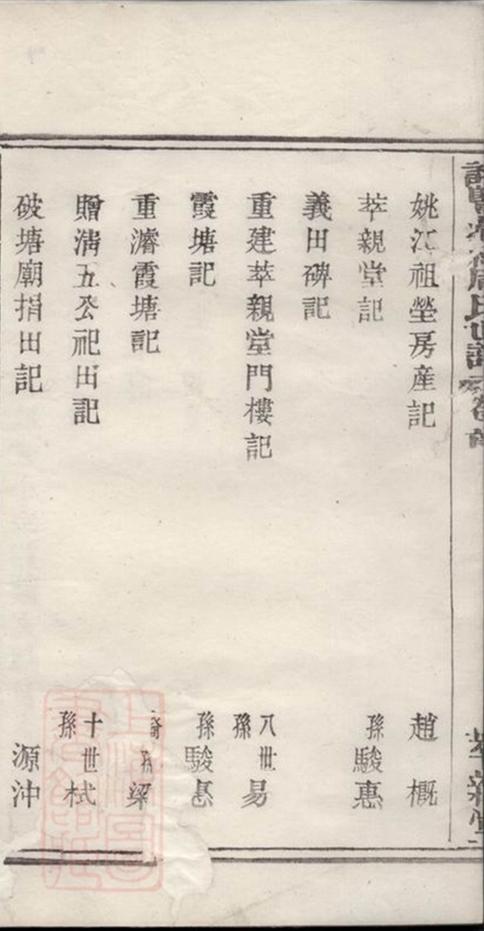 周氏世譜 卷首
萃親堂
姚江祖塋房產記 趙概
萃親堂記 孫駿惠
義田碑記
重建萃親堂門樓記 八世孫易
霞塘記 孫駿惠
重濬霞塘記 裔孫梁
贈淸五公祀田記 十世孫栻
破塘廟捐田記 源沖